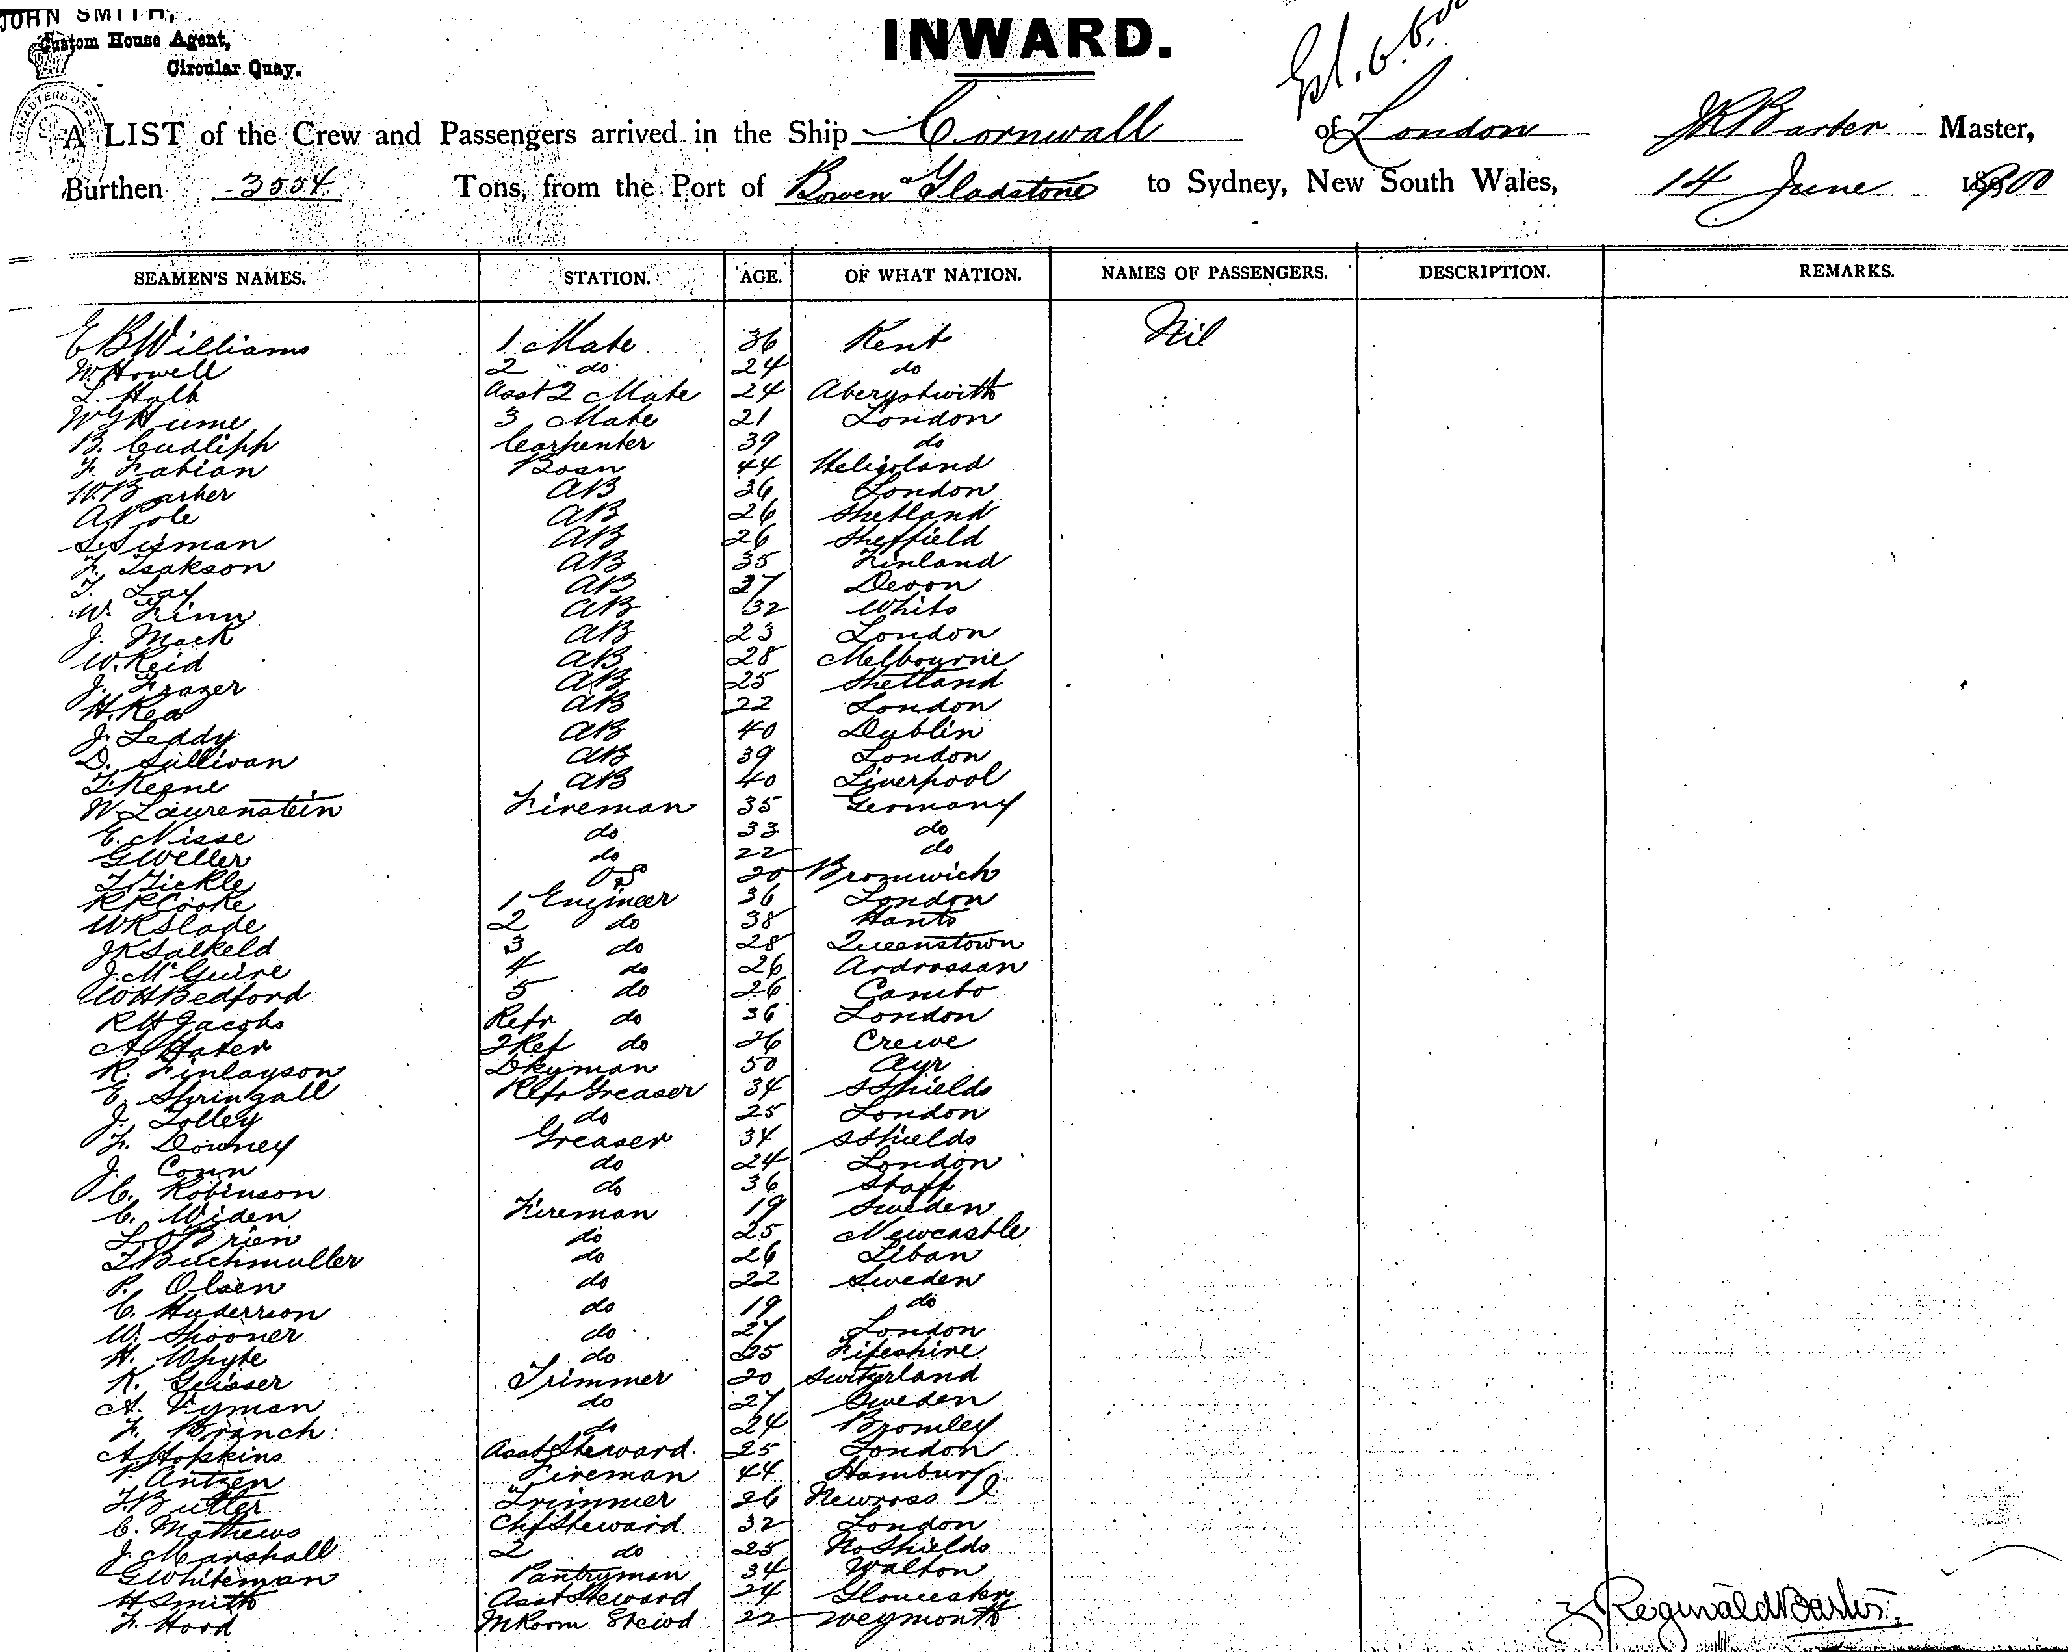 JOHN SMITH,
Custom House Agent,
Circular Quay.
INWARD.
A LIST of the Crew and Passengers arrived in the Ship Cornwall of London J R Barter Master,
Burthen 3504 Tons, from the Port of Bowen & Gladstone to Sydney, New South Wales, 14 June 1900
SEAMEN'S NAMES. STATION. AGE. OF WHAT NATION. NAMES OF PASSENGERS. DESCRIPTION. REMARKS.
E B Williams 1 Mate 36 Kent Nil
W. Howell 2 do 24 do
L. Holt Asst 2 Mate 24 Aberystwith
W G Hume 3 Mate 21 London
B. Cudlipp Carpenter 39 do
F. Fabian Bosn 44 Heligoland
W. Barber AB 36 London
A Pole AB 26 Shetland
S. Sisman AB 26 Sheffield
F. Isakson AB 35 Finland
T. Lay AB 37 Devon
W. Finn AB 32 Whits
J. Mack AB 23 London
W. Reid AB 28 Melbourne
J. Frazer AB 25 Shetland
H. Rea AB 22 London
J. Leddy AB 40 Dublin
D. Sullivan AB 39 London
T Keane AB 40 Liverpool
W. Laurenstein Fireman 35 Germany
E. Nisse do 33 do
G Weller do 22 do
T Tickle OS 20 Bromwich
R R Cooke 1 Engineer 36 London
W R Slade 2 do 38 Hants
J K Salkeld 3 do 28 Queenstown
J. McGuire 4 do 26 Ardrossan
W H Bedford 5 do 26 Cambo
R H Jacobs Refr do 36 London
A Hater 2 Ref do 26 Crewe
R. Finlayson Dkyman 50 Ayr
E. Springall Refr Greaser 34 S Shields
J. Tolley do 25 London
F. Downey Greaser 34 S Shields
J. Conn do 24 London
C. Robinson do 36 Staff
C. Widen Fireman 19 Sweden
L. O'Brien do 25 Newcastle
T Buchmuller do 26 Liban
P. Olsen do 22 Sweden
C. Anderson do 19 do
W. Spooner do 27 London
H. Whyte do 25 Fifeshire
K. Grisser Trimmer 20 Switzerland
A. Vyman do 27 Sweden
F. Branch do 24 Bromley
A Hopkins Asst Steward 25 London
P. Antzen Fireman 44 Hamburg
T. Butler Trimmer 26 Newross
C. Mathews Chf Steward 32 London
J. Marshall 2 do 25 No Shields
G Whiteman Pantryman 34 Walton
H Smith Asst Steward 24 Gloucester
F. Hood M Room Stewd 22 Weymouth
J Reginald Barter